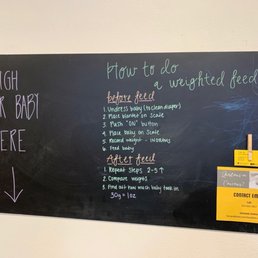 UGH
R BABY
ERE
How to do
a weighted feed
before feed
1. Undress baby (to clean diaper)
2. Place blanket on scale
3. Push "ON" button
4. Place baby on scale
5. Record weight - in grams
6. Feed baby
After feed
1. Repeat steps 2-5 ↑
2. Compare weights
3. Find out how much baby took in
30g = 1oz
CONTACT